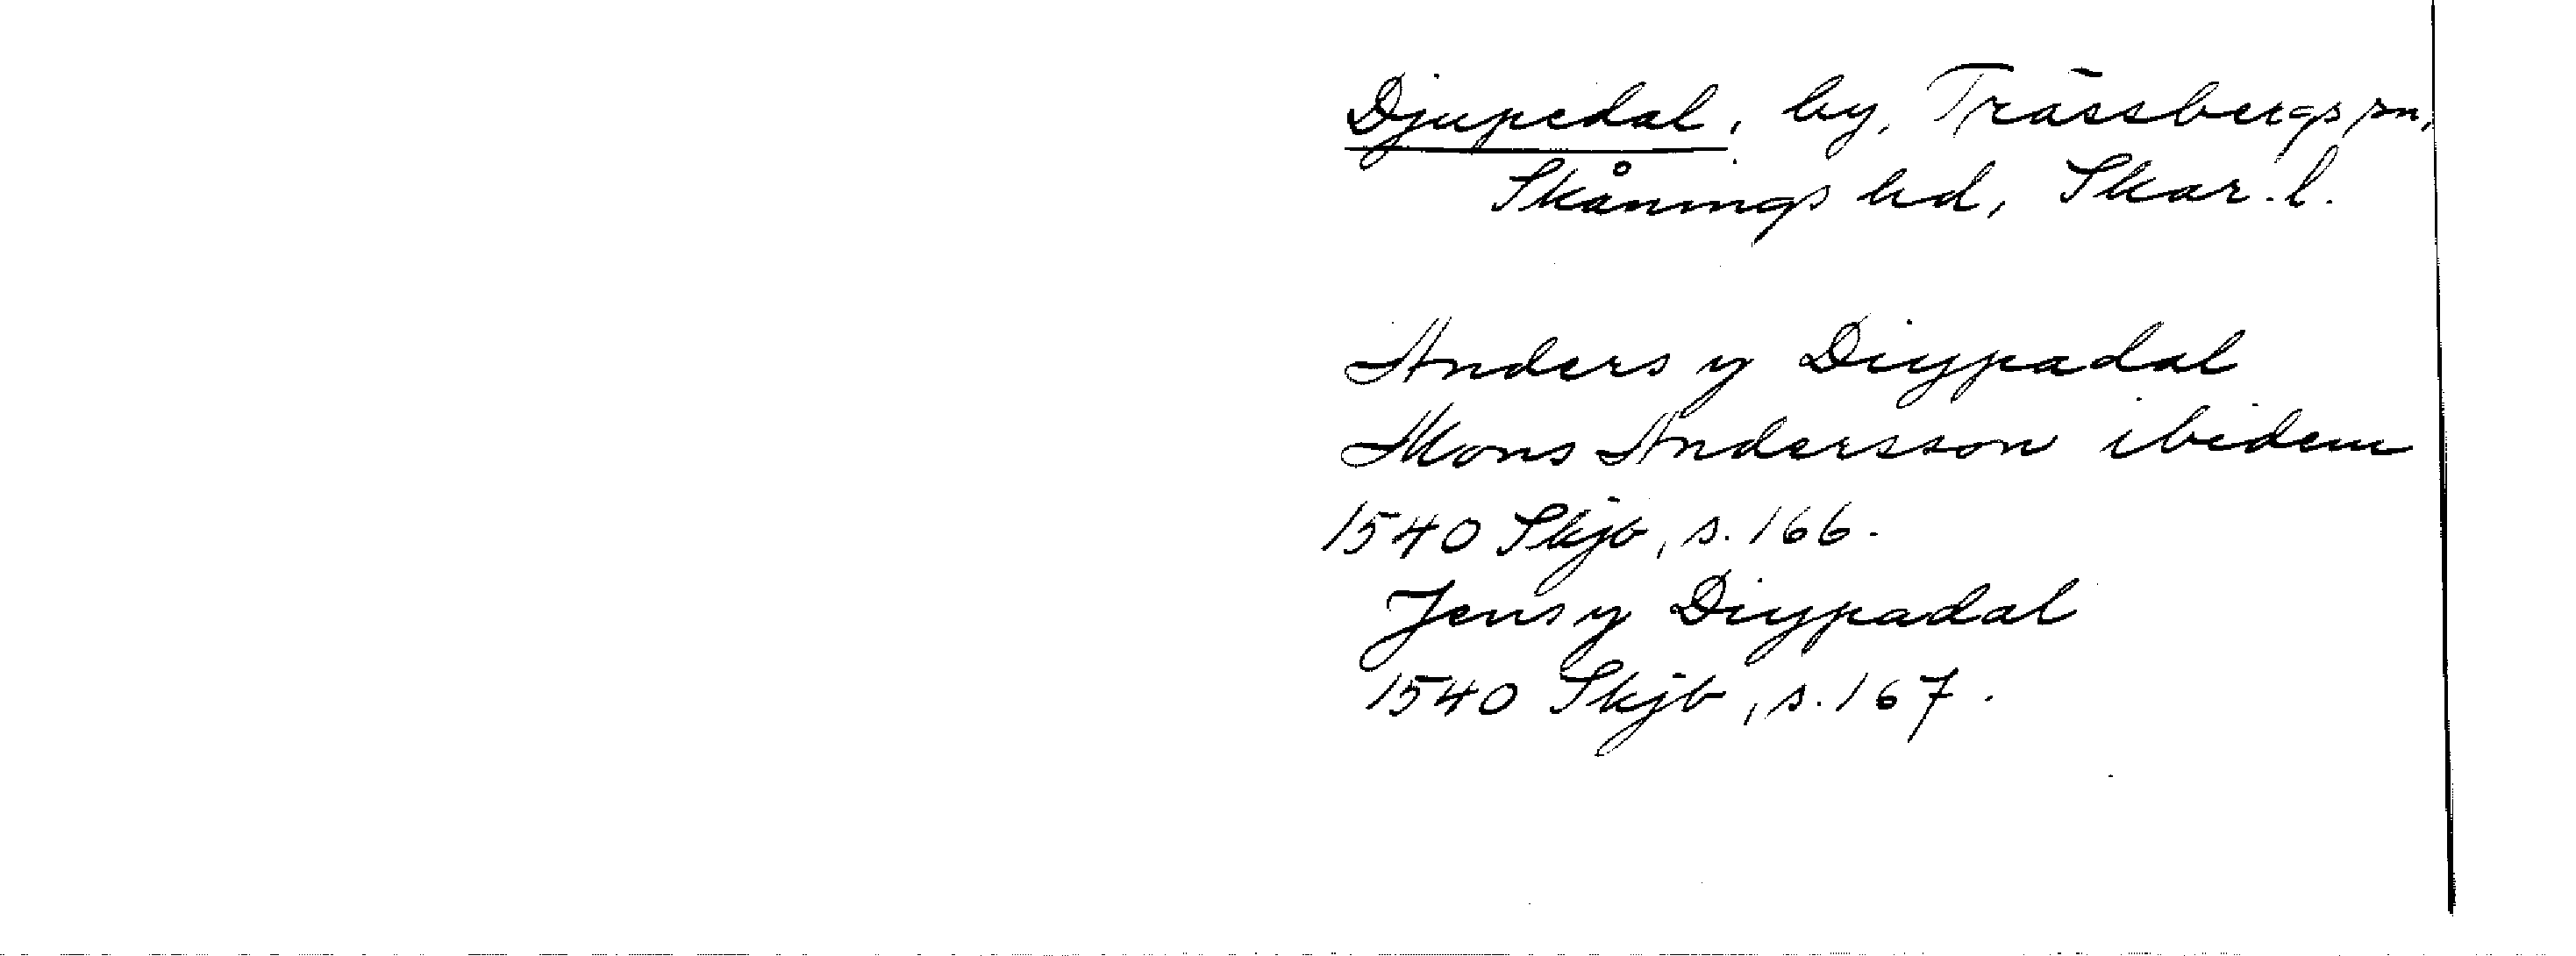 Djupedal, by, Trässbergs sn,
Skånings hd, Skar. l.
Anders y Diypadal
Mons Andersson ibidem
1540 Skjb, s. 166.
Jens y Diypadal
1540 Skjb, s. 167.